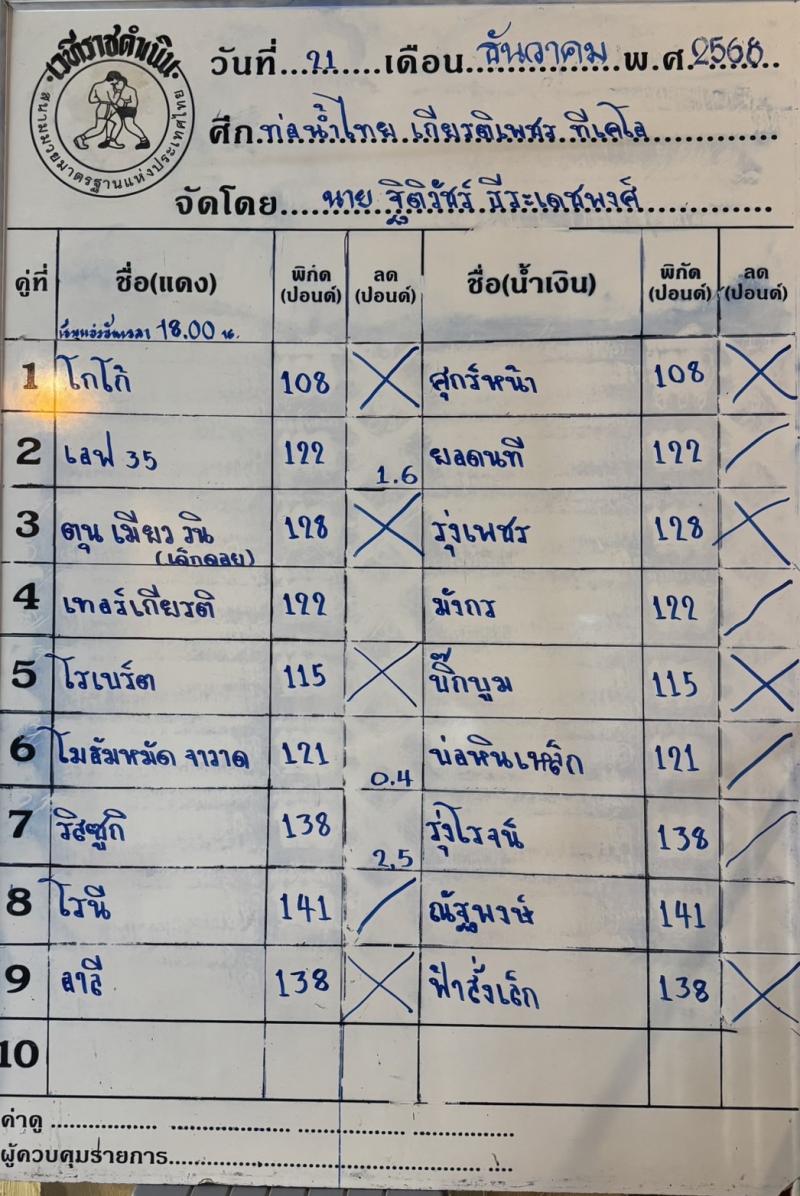 เวทีราชดำเนิน
สนามมวยมาตรฐานแห่งประเทศไทย
วันที่...21.....เดือน...ธันวาคม...พ.ศ.2568
ศึก.ท่อน้ำไทย เกียรติเพชร ทีเคโอ
จัดโดย.....นาย ฐิติวัชร์ ธีระเดชพงศ์
คู่ที่ ชื่อ(แดง) พิกัด (ปอนด์) ลด (ปอนด์) ชื่อ(น้ำเงิน) พิกัด (ปอนด์) ลด (ปอนด์)
18.00 น.
1 โกโก้ 108 ศุกร์หน้า 108
2 เลฟ 35 122 1.6 ยอดนที 122
3 ตุน เมียว วิน 128 รุ่งเพชร 128
(เด็กดอย)
4 เทอร์เกียรติ 122 มังกร 122
5 โรเบร์ต 115 บิ๊กบูม 115
6 โมฮัมหมัด จาวาด 121 0.4 บ่อหินเหล็ก 121
7 ริสซูกิ 138 2.5 รุ่งโรจน์ 138
8 โรนี 141 ณัฐพงษ์ 141
9 อาลี 138 ฟ้าสั่งเล็ก 138
10
ค่าดู ................ .................. .................. .................
ผู้ควบคุมรายการ..................................................... ....